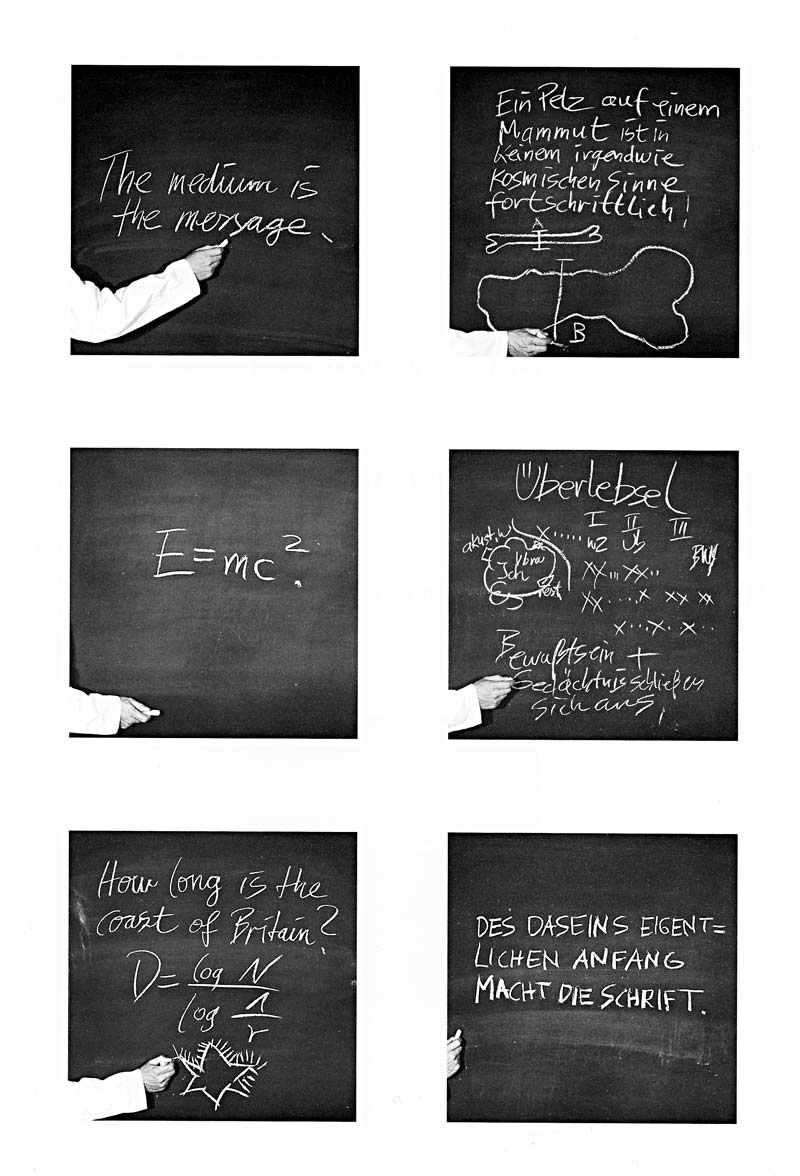 The medium is
the message.
Ein Pelz auf einem
Mammut ist in
keinem irgendwie
kosmischen Sinne
fortschrittlich!
A
B
E=mc².
Überlebsel
I II III
akust. W
W2 Ub
BW
Vbw
Ich
Es
Bewußtsein +
Gedächtnis schließen
sich aus,
How long is the
coast of Britain?
D= log N
log 1
r
DES DASEINS EIGENT=
LICHEN ANFANG
MACHT DIE SCHRIFT.